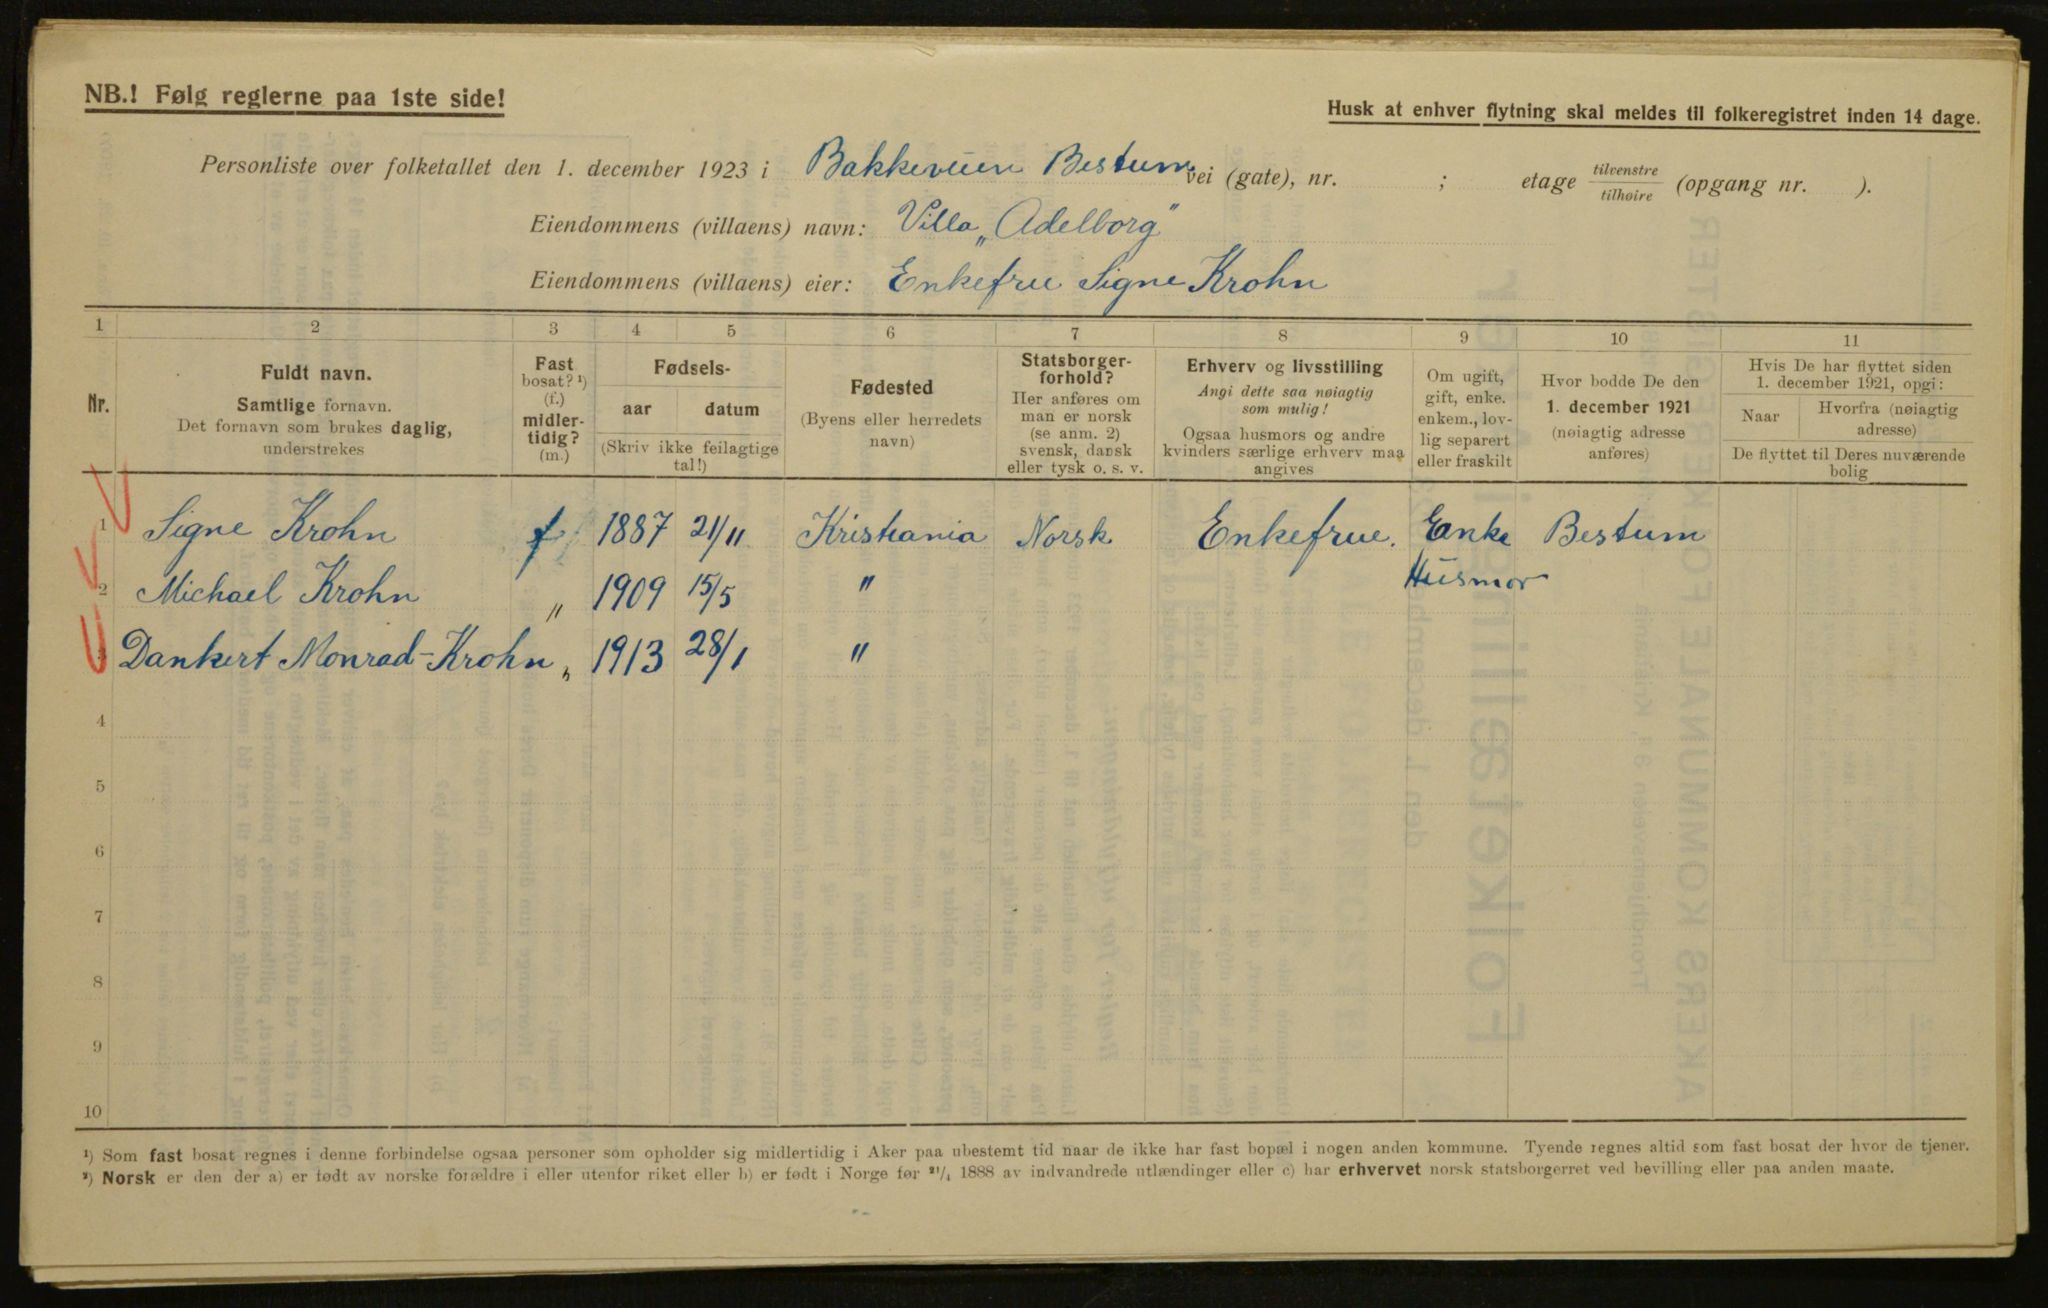 NB.! Følg reglerne paa 1ste side!
Husk at enhver flytning skal meldes til folkeregistret inden 14 dage.
Personliste over folketallet den 1. december 1923 i Bakkeveien Bestum vei (gate), nr. ; etage tilvenstre/tilhøire (opgang nr. ).
Eiendommens (villaens) navn: Villa „Adelborg"
Eiendommens (villaens) eier: Enkefrue Signe Krohn
1 2 3 4 5 6 7 8 9 10 11
Nr.
Fuldt navn.
Samtlige fornavn.
Det fornavn som brukes daglig,
understrekes
Fast
bosat? ¹)
(f.)
midler-
tidig?
(m.)
Fødsels-
aar datum
(Skriv ikke feilagtige
tal!)
Fødested
(Byens eller herredets
navn)
Statsborger-
forhold?
Her anføres om
man er norsk
(se anm. 2)
svensk, dansk
eller tysk o. s. v.
Erhverv og livsstilling
Angi dette saa nøiagtig
som mulig!
Ogsaa husmors og andre
kvinders særlige erhverv maa
angives
Om ugift,
gift, enke.
enkem., lov-
lig separert
eller fraskilt
Hvor bodde De den
1. december 1921
(nøiagtig adresse
anføres)
Hvis De har flyttet siden
1. december 1921, opgi:
Naar Hvorfra (nøiagtig
adresse)
De flyttet til Deres nuværende
bolig
1 Signe Krohn f 1887 21/11 Kristiania Norsk Enkefrue. Enke Bestum
Husmor
2 Michael Krohn " 1909 15/5 "
3 Dankert Monrad-Krohn " 1913 28/1 "
4
5
6
7
8
9
10
¹) Som fast bosat regnes i denne forbindelse ogsaa personer som opholder sig midlertidig i Aker paa ubestemt tid naar de ikke har fast bopæl i nogen anden kommune. Tyende regnes altid som fast bosat der hvor de tjener.
²) Norsk er den der a) er født av norske forældre i eller utenfor riket eller b) er født i Norge før ²¹/₄ 1888 av indvandrede utlændinger eller c) har erhvervet norsk statsborgerret ved bevilling eller paa anden maate.